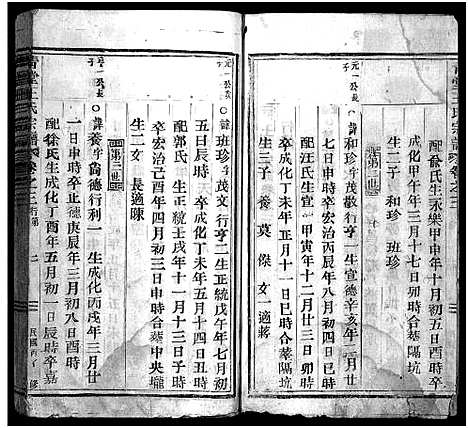 配徐氏生永樂甲申年十月初五日酉時卒
成化甲午年三月十七日巳時合葬隔坑
生二子 和珍 班珍
第二世
元一公長子
諱和珍字茂敬行亨一生宣德辛亥年二月廿
七日申時卒弘治丙辰年八月初四日巳時
配汪氏生宣德甲寅年十二月廿三日卯時
卒成化丁未年正月十一日巳時合葬隔坑
生三子 養 莫 傑 女一適蔣
元一公次子
諱班珍字茂文行亨二生正統戊午年七月初
五日辰時卒成化丁未年五月十四日丑時
配郭氏生正統壬戌年十一月十三日子時
卒宏治己酉年四月初三日申時合葬中央壠
生二女 長適陳
第三世
亨一公長子
諱養字尚德行利一生成化丙戌年三月廿
一日申時卒正德庚辰年三月初八日酉時
配徐氏生成化丁酉年五月初一日時卒嘉
王氏宗譜 卷之三 行第 二 民國丙子修